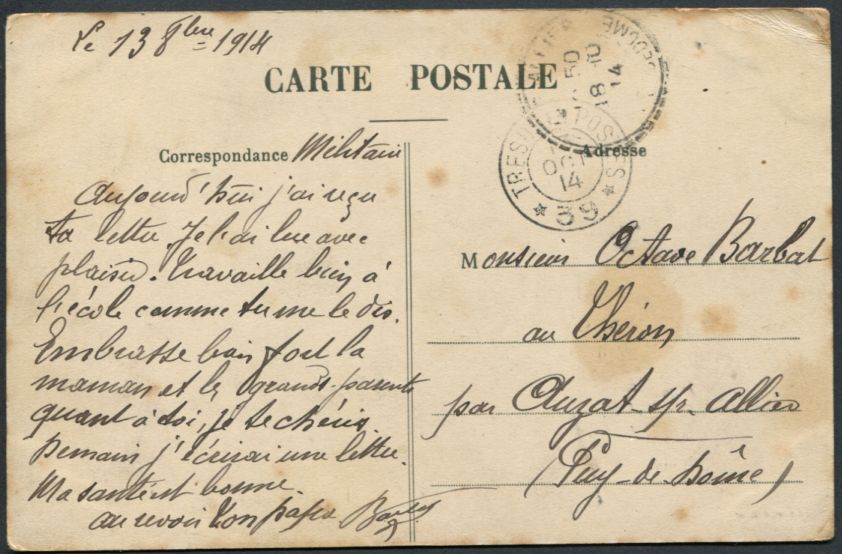 Le 13 8bre 1914
CARTE POSTALE
Correspondance Militaire
Adresse
TRESOR ET POSTES
OCT
14
* 39 *
18 10
14
Aujourd'hui j'ai reçu
ta lettre. Je l'ai lue avec
plaisir. Travaille bien à
l'école comme tu me le dis.
Embrasse bien fort la
maman et les grands-parents
quant à toi, je te chéris.
Demain j'écrirai une lettre.
Ma santé est bonne.
au revoir Ton papa
Monsieur Octave Barbat
au Théron
par Auzat-sr-Allier
(Puy-de-Dôme)